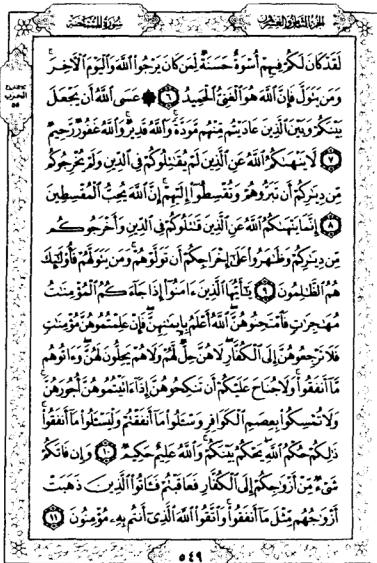 سورة الممتحنة الجزء الثامن والعشرون
لَقَدْ كَانَ لَكُمْ فِيهِمْ أُسْوَةٌ حَسَنَةٌ لِمَن كَانَ يَرْجُوا۟ ٱللَّهَ وَٱلْيَوْمَ ٱلْـَٔاخِرَ ۚ
وَمَن يَتَوَلَّ فَإِنَّ ٱللَّهَ هُوَ ٱلْغَنِىُّ ٱلْحَمِيدُ ٦ ۞ عَسَى ٱللَّهُ أَن يَجْعَلَ
بَيْنَكُمْ وَبَيْنَ ٱلَّذِينَ عَادَيْتُم مِّنْهُم مَّوَدَّةً ۚ وَٱللَّهُ قَدِيرٌ ۚ وَٱللَّهُ غَفُورٌ رَّحِيمٌ
٧ لَّا يَنْهَىٰكُمُ ٱللَّهُ عَنِ ٱلَّذِينَ لَمْ يُقَـٰتِلُوكُمْ فِى ٱلدِّينِ وَلَمْ يُخْرِجُوكُم
مِّن دِيَـٰرِكُمْ أَن تَبَرُّوهُمْ وَتُقْسِطُوٓا۟ إِلَيْهِمْ ۚ إِنَّ ٱللَّهَ يُحِبُّ ٱلْمُقْسِطِينَ
٨ إِنَّمَا يَنْهَىٰكُمُ ٱللَّهُ عَنِ ٱلَّذِينَ قَـٰتَلُوكُمْ فِى ٱلدِّينِ وَأَخْرَجُوكُم
مِّن دِيَـٰرِكُمْ وَظَـٰهَرُوا۟ عَلَىٰٓ إِخْرَاجِكُمْ أَن تَوَلَّوْهُمْ ۚ وَمَن يَتَوَلَّهُمْ فَأُو۟لَـٰٓئِكَ
هُمُ ٱلظَّـٰلِمُونَ ٩ يَـٰٓأَيُّهَا ٱلَّذِينَ ءَامَنُوٓا۟ إِذَا جَآءَكُمُ ٱلْمُؤْمِنَـٰتُ
مُهَـٰجِرَٰتٍ فَٱمْتَحِنُوهُنَّ ۖ ٱللَّهُ أَعْلَمُ بِإِيمَـٰنِهِنَّ ۖ فَإِنْ عَلِمْتُمُوهُنَّ مُؤْمِنَـٰتٍ
فَلَا تَرْجِعُوهُنَّ إِلَى ٱلْكُفَّارِ ۖ لَا هُنَّ حِلٌّ لَّهُمْ وَلَا هُمْ يَحِلُّونَ لَهُنَّ ۖ وَءَاتُوهُم
مَّآ أَنفَقُوا۟ ۚ وَلَا جُنَاحَ عَلَيْكُمْ أَن تَنكِحُوهُنَّ إِذَآ ءَاتَيْتُمُوهُنَّ أُجُورَهُنَّ ۚ
وَلَا تُمْسِكُوا۟ بِعِصَمِ ٱلْكَوَافِرِ وَسْـَٔلُوا۟ مَآ أَنفَقْتُمْ وَلْيَسْـَٔلُوا۟ مَآ أَنفَقُوا۟ ۚ
ذَٰلِكُمْ حُكْمُ ٱللَّهِ ۖ يَحْكُمُ بَيْنَكُمْ ۚ وَٱللَّهُ عَلِيمٌ حَكِيمٌ ١٠ وَإِن فَاتَكُمْ
شَىْءٌ مِّنْ أَزْوَٰجِكُمْ إِلَى ٱلْكُفَّارِ فَعَاقَبْتُمْ فَـَٔاتُوا۟ ٱلَّذِينَ ذَهَبَتْ
أَزْوَٰجُهُم مِّثْلَ مَآ أَنفَقُوا۟ ۚ وَٱتَّقُوا۟ ٱللَّهَ ٱلَّذِىٓ أَنتُم بِهِۦ مُؤْمِنُونَ ١١
٥٤٩